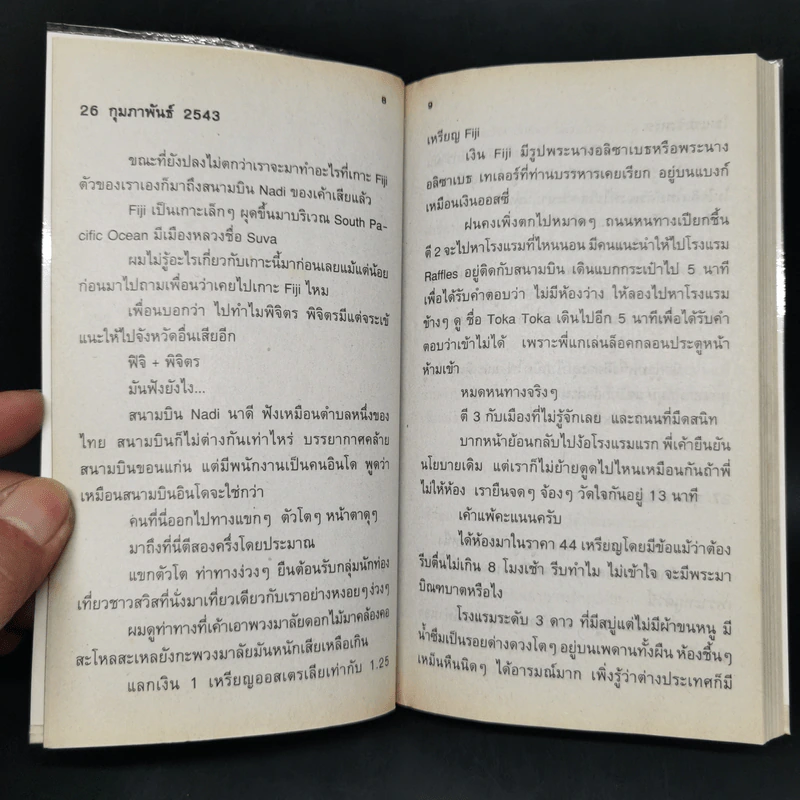 8
26 กุมภาพันธ์ 2543
ขณะที่ยังปลงไม่ตกว่าเราจะมาทำอะไรที่เกาะ Fiji
ตัวของเราเองก็มาถึงสนามบิน Nadi ของเค้าเสียแล้ว
Fiji เป็นเกาะเล็กๆ ผุดขึ้นมาบริเวณ South Pa-
cific Ocean มีเมืองหลวงชื่อ Suva
ผมไม่รู้อะไรเกี่ยวกับเกาะนี้มาก่อนเลยแม้แต่น้อย
ก่อนมาไปถามเพื่อนว่าเคยไปเกาะ Fiji ไหม
เพื่อนบอกว่า ไปทำไมพิจิตร พิจิตรมีแต่จระเข้
แนะให้ไปจังหวัดอื่นเสียอีก
ฟิจิ + พิจิตร
มันฟังยังไง...
สนามบิน Nadi นาดี ฟังเหมือนตำบลหนึ่งของ
ไทย สนามบินก็ไม่ต่างกันเท่าไหร่ บรรยากาศคล้าย
สนามบินขอนแก่น แต่มีพนักงานเป็นคนอินโด พูดว่า
เหมือนสนามบินอินโดจะใช่กว่า
คนที่นี่ออกไปทางแขกๆ ตัวโตๆ หน้าตาดุๆ
มาถึงที่นี่ตีสองครึ่งโดยประมาณ
แขกตัวโต ท่าทางง่วงๆ ยืนต้อนรับกลุ่มนักท่อง
เที่ยวชาวสวิสที่นั่งมาเที่ยวเดียวกับเราอย่างหงอยๆง่วงๆ
ผมดูท่าทางที่เค้าเอาพวงมาลัยดอกไม้มาคล้องคอ
สะโหลสะเหลยังกะพวงมาลัยมันหนักเสียเหลือเกิน
แลกเงิน 1 เหรียญออสเตรเลียเท่ากับ 1.25
9
เหรียญ Fiji
เงิน Fiji มีรูปพระนางอลิซาเบธหรือพระนาง
อลิซาเบธ เทเลอร์ที่ท่านบรรหารเคยเรียก อยู่บนแบงก์
เหมือนเงินออสซี่
ฝนคงเพิ่งตกไปหมาดๆ ถนนหนทางเปียกชื้น
ตี 2 จะไปหาโรงแรมที่ไหนนอน มีคนแนะนำให้ไปโรงแรม
Raffles อยู่ติดกับสนามบิน เดินแบกกระเป๋าไป 5 นาที
เพื่อได้รับคำตอบว่า ไม่มีห้องว่าง ให้ลองไปหาโรงแรม
ข้างๆ ดู ชื่อ Toka Toka เดินไปอีก 5 นาทีเพื่อได้รับคำ
ตอบว่าเข้าไม่ได้ เพราะพี่แกเล่นล็อคกลอนประตูหน้า
ห้ามเข้า
หมดหนทางจริงๆ
ตี 3 กับเมืองที่ไม่รู้จักเลย และถนนที่มืดสนิท
บากหน้าย้อนกลับไปง้อโรงแรมแรก พี่เค้ายืนยัน
นโยบายเดิม แต่เราก็ไม่ย้ายตูดไปไหนเหมือนกันถ้าพี่
ไม่ให้ห้อง เรายืนจดๆ จ้องๆ วัดใจกันอยู่ 13 นาที
เค้าแพ้คะแนนครับ
ได้ห้องมาในราคา 44 เหรียญโดยมีข้อแม้ว่าต้อง
รีบตื่นไม่เกิน 8 โมงเช้า รีบทำไม ไม่เข้าใจ จะมีพระมา
บิณฑบาตหรือไง
โรงแรมระดับ 3 ดาว ที่มีสบู่แต่ไม่มีผ้าขนหนู มี
น้ำซึมเป็นรอยด่างดวงโตๆ อยู่บนเพดานทั้งผืน ห้องชื้นๆ
เหม็นหืนนิดๆ ได้อารมณ์มาก เพิ่งรู้ว่าต่างประเทศก็มี